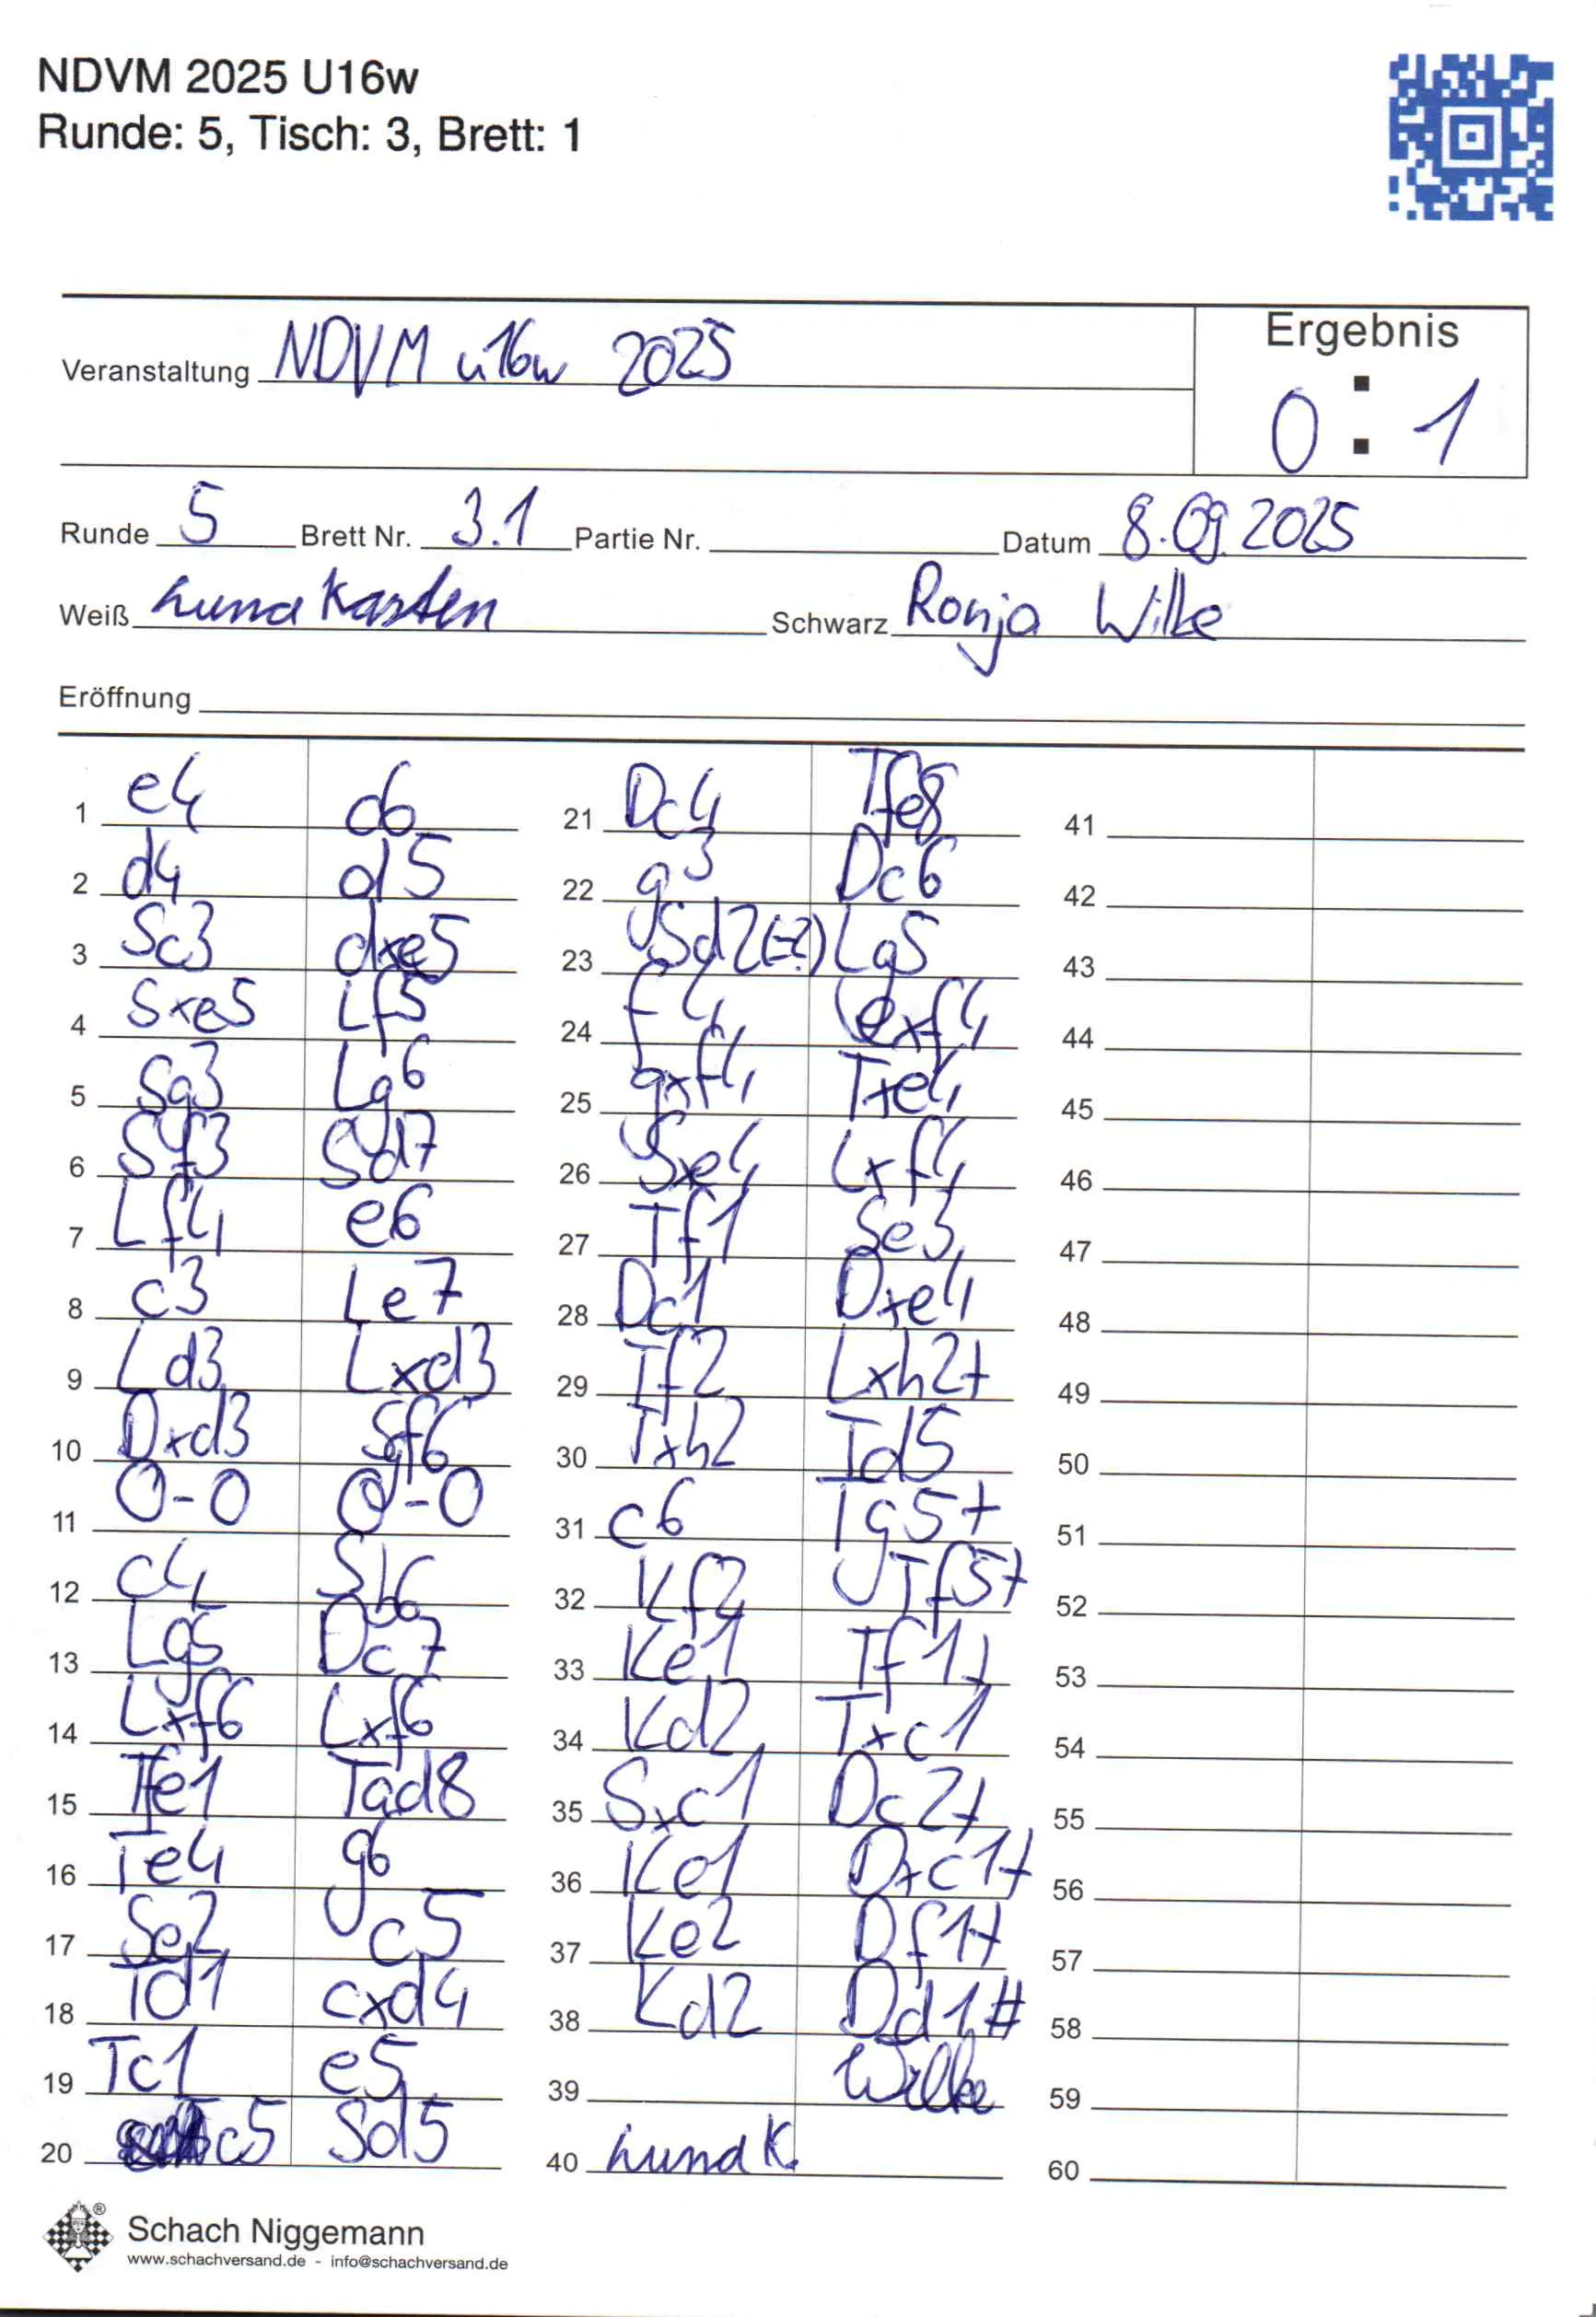 NDVM 2025 U16w
Runde: 5, Tisch: 3, Brett: 1
Veranstaltung NDVM u16w 2025
Ergebnis
0 : 1
Runde 5 Brett Nr. 3.1 Partie Nr. Datum 8.09.2025
Weiß Luna Karsten Schwarz Ronja Wilke
Eröffnung
1 e4 c6 21 Dc4 Tfe8 41
2 d4 d5 22 g3 Dc6 42
3 Sc3 dxe5 23 Sd2(=?) Lg5 43
4 Sxe5 Lf5 24 f4 exf4 44
5 Sg3 Lg6 25 gxf4 Txe4 45
6 Sf3 Sd7 26 Sxe4 Lxf4 46
7 Lf4 e6 27 Tf1 Se3 47
8 c3 Le7 28 Dc1 Dxe4 48
9 Ld3 Lxd3 29 Tf2 Lxh2+ 49
10 Dxd3 Sf6 30 Txh2 Td5 50
11 0-0 0-0 31 c6 Tg5+ 51
12 c4 Sb6 32 Kf2 Tf5+ 52
13 Lg5 Dc7 33 Ke1 Tf1+ 53
14 Lxf6 Lxf6 34 Kd2 Txc1 54
15 Tfe1 Tad8 35 Sxc1 Dc2+ 55
16 Te4 g6 36 Ke1 Dxc1+ 56
17 Se2 c5 37 Ke2 Df1+ 57
18 Td1 cxd4 38 Kd2 Dd1# 58
19 Tc1 e5 39 Wilke 59
20 c5 Sd5 40 Luna K. 60
Schach Niggemann
www.schachversand.de - info@schachversand.de